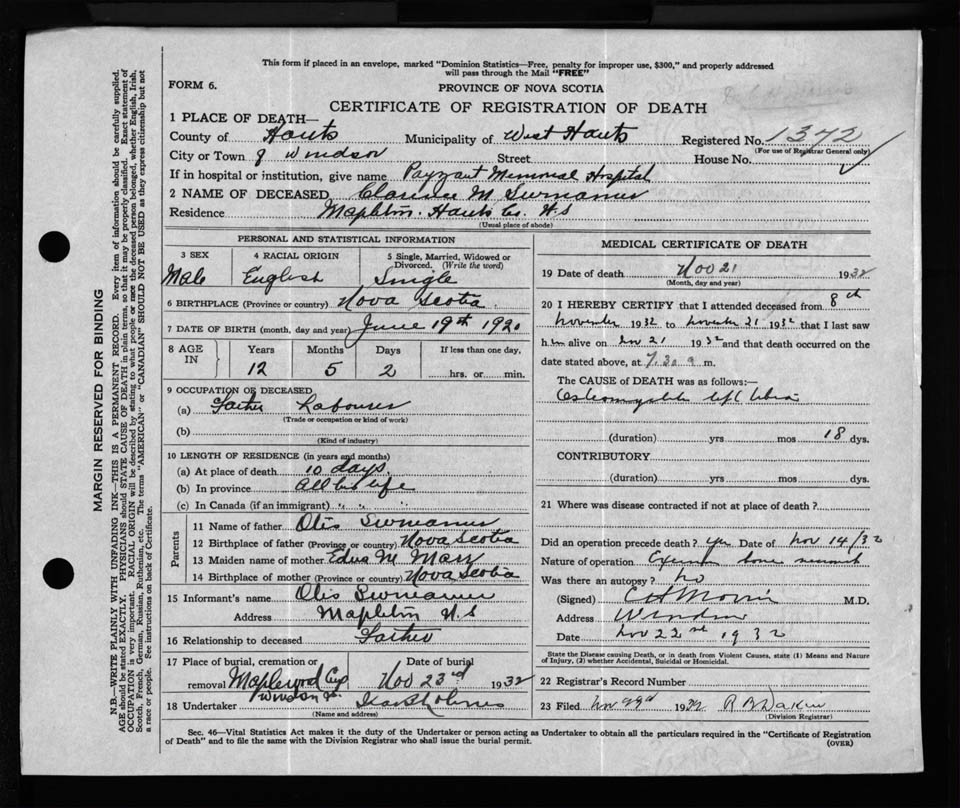 This form if placed in an envelope, marked "Dominion Statistics—Free, penalty for improper use, $300," and properly addressed
will pass through the Mail "FREE"
FORM 6.
PROVINCE OF NOVA SCOTIA
CERTIFICATE OF REGISTRATION OF DEATH
1 PLACE OF DEATH—
County of Hants Municipality of West Hants Registered No. 1372
(For use of Registrar General only)
City or Town of Windsor Street House No.
If in hospital or institution, give name Payzant Memorial Hospital
2 NAME OF DECEASED Clarence M
Residence Hants Co. N.S
(Usual place of abode)
PERSONAL AND STATISTICAL INFORMATION
3 SEX 4 RACIAL ORIGIN 5 Single, Married, Widowed or Divorced. (Write the word)
Male English Single
6 BIRTHPLACE (Province or country) Nova Scotia
7 DATE OF BIRTH (month, day and year) June 19th 1920
8 AGE IN Years Months Days If less than one day,
12 5 2 hrs. or min.
9 OCCUPATION OF DECEASED
(a) Father Labourer
(Trade or occupation or kind of work)
(b)
(Kind of industry)
10 LENGTH OF RESIDENCE (in years and months)
(a) At place of death 10 days
(b) In province All his life
(c) In Canada (if an immigrant) " " "
Parents
11 Name of father Otis
12 Birthplace of father (Province or country) Nova Scotia
13 Maiden name of mother Edna M
14 Birthplace of mother (Province or country) Nova Scotia
15 Informant's name Otis
Address N.S
16 Relationship to deceased Father
17 Place of burial, cremation or removal Maplewood Windsor Date of burial Nov 23rd 1932
18 Undertaker
(Name and address)
MEDICAL CERTIFICATE OF DEATH
19 Date of death Nov 21 1932
(Month, day and year)
20 I HEREBY CERTIFY that I attended deceased from 8th
November 1932 to November 21 1932 that I last saw
him alive on Nov 21 1932 and that death occurred on the
date stated above, at 7.30 m.
The CAUSE OF DEATH was as follows:—
Osteomyelitis left tibia
(duration) yrs mos 18 dys.
CONTRIBUTORY
(duration) yrs mos dys.
21 Where was disease contracted if not at place of death?
Did an operation precede death? yes Date of Nov 14/32
Nature of operation bone
Was there an autopsy? no
(Signed) M.D.
Address Windsor
Date Nov 22nd 1932
State the Disease causing Death, or in death from Violent Causes, state (1) Means and Nature
of Injury, (2) whether Accidental, Suicidal or Homicidal.
22 Registrar's Record Number
23 Filed Nov 1932
(Division Registrar)
Sec. 46—Vital Statistics Act makes it the duty of the Undertaker or person acting as Undertaker to obtain all the particulars required in the "Certificate of Registration
of Death" and to file the same with the Division Registrar who shall issue the burial permit.
(OVER)
MARGIN RESERVED FOR BINDING
N.B.—WRITE PLAINLY WITH UNFADING INK—THIS IS A PERMANENT RECORD. Every item of information should be carefully supplied.
AGE should be stated EXACTLY. PHYSICIANS should STATE CAUSE OF DEATH in plain terms, so that it may be properly classified. Exact statement of
OCCUPATION is very important. RACIAL ORIGIN will be described by stating to what people or race the deceased person belonged, whether English, Irish,
Scotch, French, German, Russian, Ruthenian, etc. The terms "AMERICAN" or "CANADIAN" SHOULD NOT BE USED as they express citizenship but not
a race or people. See instructions on back of Certificate.